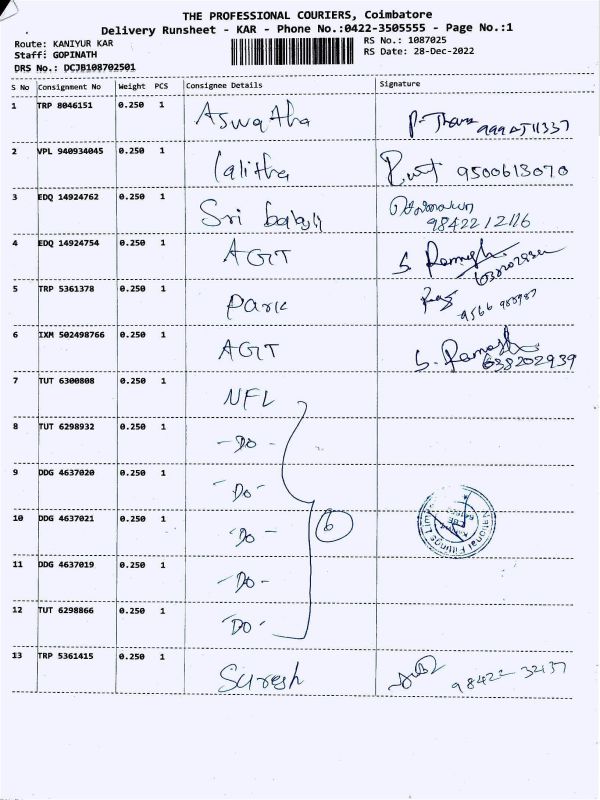 THE PROFESSIONAL COURIERS, Coimbatore
Delivery Runsheet - KAR - Phone No.:0422-3505555 - Page No.:1
Route: KANIYUR KAR
RS No.: 1087025
Staff: GOPINATH
RS Date: 28-Dec-2022
DRS No.: DCJB108702501
S No Consignment No Weight PCS Consignee Details Signature
1 TRP 8046151 0.250 1 Aswatha
2 VPL 940934045 0.250 1 Lalitha 9500613070
3 EDQ 14924762 0.250 1 Sri balaji
98422 12116
4 EDQ 14924754 0.250 1 AGIT S. Ramesh
5 TRP 5361378 0.250 1 Park
6 IXM 502498766 0.250 1 AGIT S. Ramesh
638202939
7 TUT 6300808 0.250 1 NFL
8 TUT 6298932 0.250 1 - Do -
9 DDG 4637020 0.250 1 - Do -
10 DDG 4637021 0.250 1 - Do - 6
National Fittings
11 DDG 4637019 0.250 1 - Do -
12 TUT 6298866 0.250 1 - Do -
13 TRP 5361415 0.250 1 Suresh